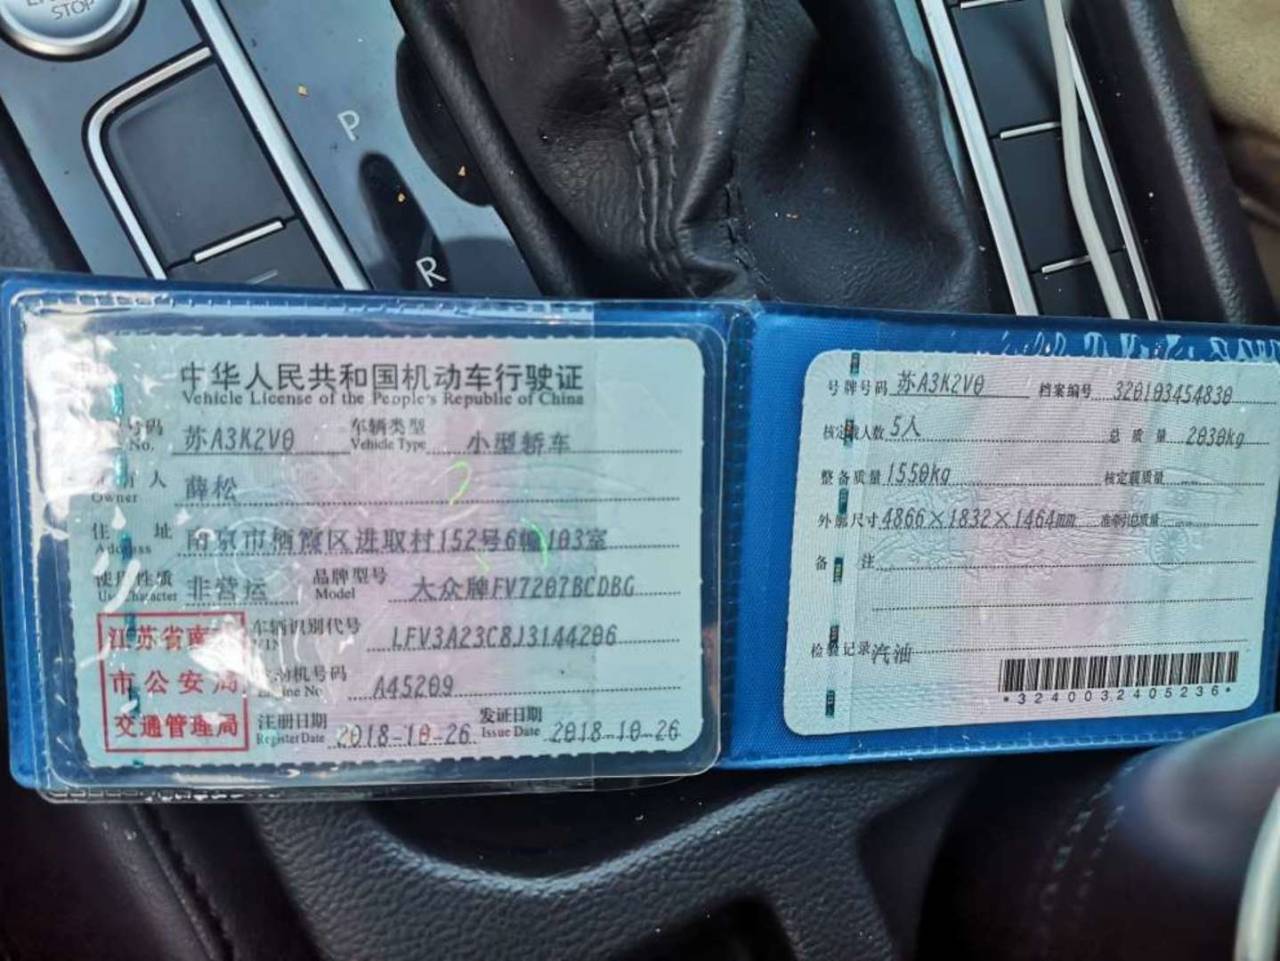 STOP
P
R
中华人民共和国机动车行驶证
Vehicle License of the People's Republic of China
号码 苏A3K2V0 车辆类型 小型轿车
No. Vehicle Type
人 薛松
Owner
住 址 南京市栖霞区进取村152号6幢103室
Address
使用性质 非营运 品牌型号 大众牌FV7207BCDBG
Use Character Model
江苏省南 车辆识别代号 LFV3A23C8J3144206
VIN
市公安局 机号码 A45209
Engine No.
交通管理局 注册日期 2018-10-26 发证日期 2018-10-26
Register Date Issue Date
号牌号码 苏A3K2V0 档案编号 320103454830
核定载人数 5人 总质量 2030kg
整备质量 1550kg 核定载质量
外廓尺寸 4866×1832×1464mm 准牵引总质量
备 注
检验记录 汽油
*3240032405236*